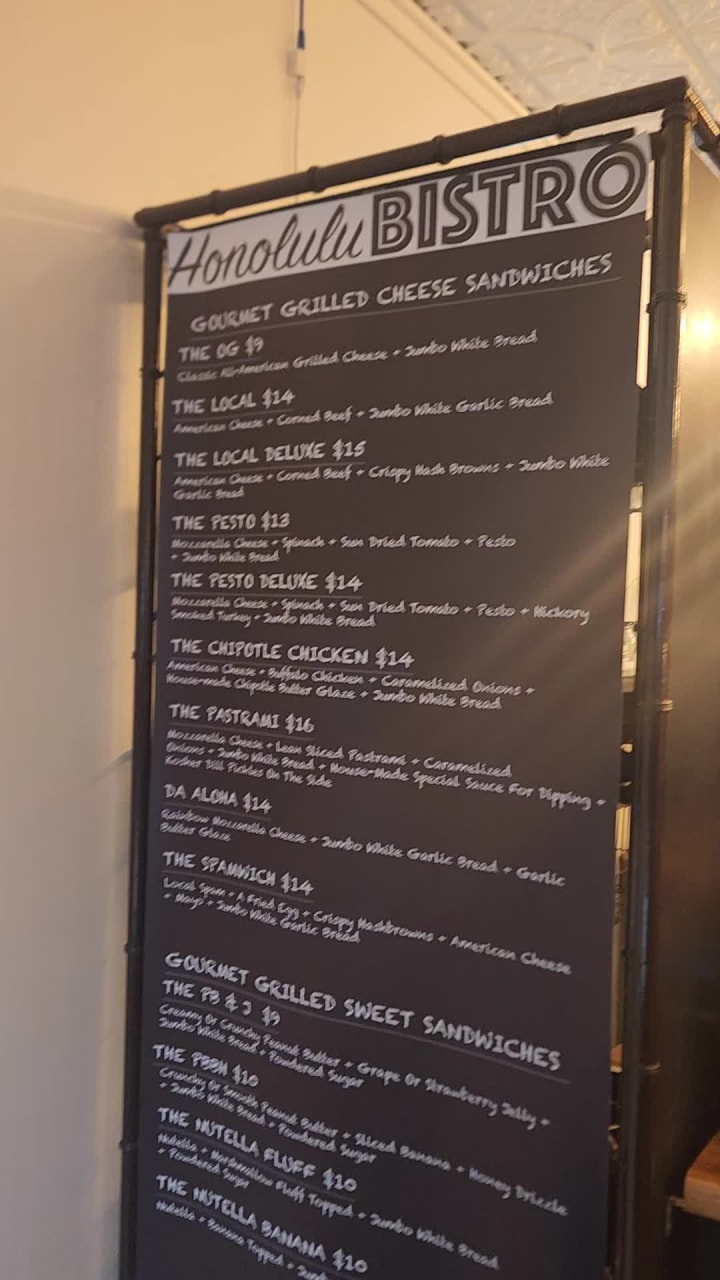 Honolulu BISTRO
GOURMET GRILLED CHEESE SANDWICHES
THE OG $9
Classic All-American Grilled Cheese + Jumbo White Bread
THE LOCAL $14
American Cheese + Corned Beef + Jumbo White Garlic Bread
THE LOCAL DELUXE $15
American Cheese + Corned Beef + Crispy Hash Browns + Jumbo White
Garlic Bread
THE PESTO $13
Mozzarella Cheese + Spinach + Sun Dried Tomato + Pesto
+ Jumbo White Bread
THE PESTO DELUXE $14
Mozzarella Cheese + Spinach + Sun Dried Tomato + Pesto + Hickory
Smoked Turkey + Jumbo White Bread
THE CHIPOTLE CHICKEN $14
American Cheese + Buffalo Chicken + Caramelized Onions +
House-made Chipotle Butter Glaze + Jumbo White Bread
THE PASTRAMI $16
Mozzarella Cheese + Lean Sliced Pastrami + Caramelized
Onions + Jumbo White Bread + House-Made Special Sauce For Dipping +
Kosher Dill Pickles On The Side
DA ALOHA $14
Rainbow Mozzarella Cheese + Jumbo White Garlic Bread + Garlic
Butter Glaze
THE SPAMWICH $14
Local Spam + A Fried Egg + Crispy Hashbrowns + American Cheese
+ Mayo + Jumbo White Garlic Bread
GOURMET GRILLED SWEET SANDWICHES
THE PB & J $9
Creamy Or Crunchy Peanut Butter + Grape Or Strawberry Jelly +
Jumbo White Bread + Powdered Sugar
THE PBBH $10
Crunchy Or Smooth Peanut Butter + Sliced Banana + Honey Drizzle
+ Jumbo White Bread + Powdered Sugar
THE NUTELLA FLUFF $10
Nutella + Marshmallow Fluff Topped + Jumbo White Bread
+ Powdered Sugar
THE NUTELLA BANANA $10
Nutella + Banana Topped +